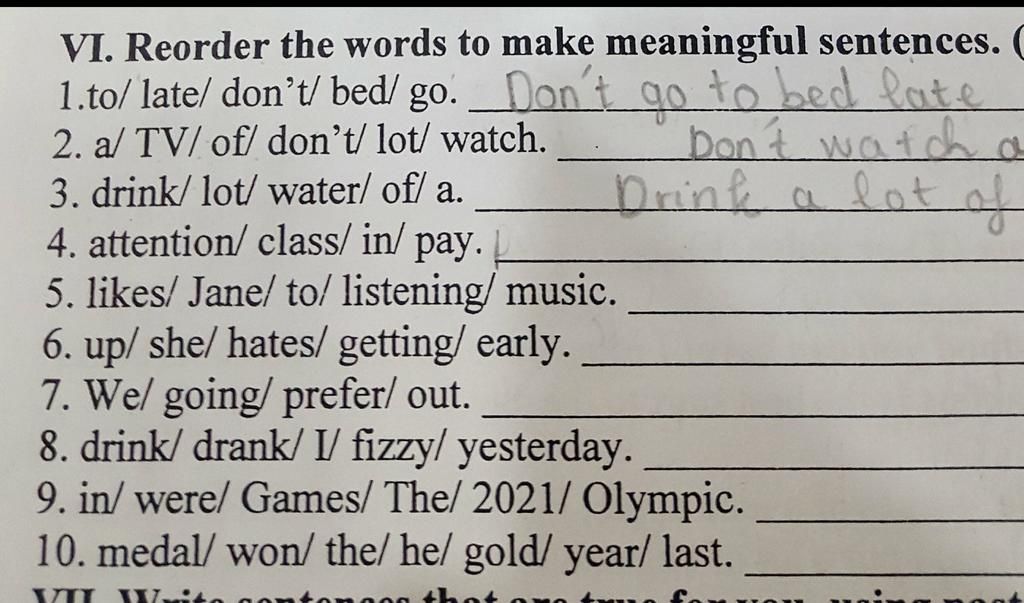 VI. Reorder the words to make meaningful sentences. (
1.to/ late/ don't/ bed/ go. Don't go to bed late
2. a/ TV/ of/ don't/ lot/ watch. Don't watch a
3. drink/ lot/ water/ of/ a. Drink a lot of
4. attention/ class/ in/ pay.
5. likes/ Jane/ to/ listening/ music.
6. up/ she/ hates/ getting/ early.
7. We/ going/ prefer/ out.
8. drink/ drank/ I/ fizzy/ yesterday.
9. in/ were/ Games/ The/ 2021/ Olympic.
10. medal/ won/ the/ he/ gold/ year/ last.
VII. Write sentences that are true for you, using past